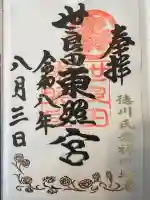 奉拝
徳川氏発祥の地
世良田東照宮
令和八年
八月三日